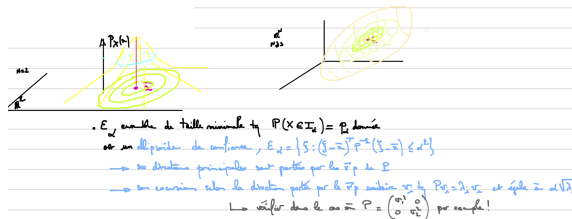 P_X(x)
N=2
ℝ²
ℝᴺ
N≥3
• Ɛ_α ensemble de taille minimale tq P(X ∈ I_α) = p_α donnée
est un ellipsoïde de confiance, Ɛ_α = { ξ : (ξ - x̄)ᵀ P⁻¹ (ξ - x̄) ≤ α² }
→ ses directions principales sont portées par les v⃗p de P
→ son excursion selon la direction portée par le v⃗p unitaire v_i tq P v_i = λ_i v_i est égale à α√λ
↳ vérifier dans le cas où P = (σ₁² 0 0 σ₂²) par exemple !